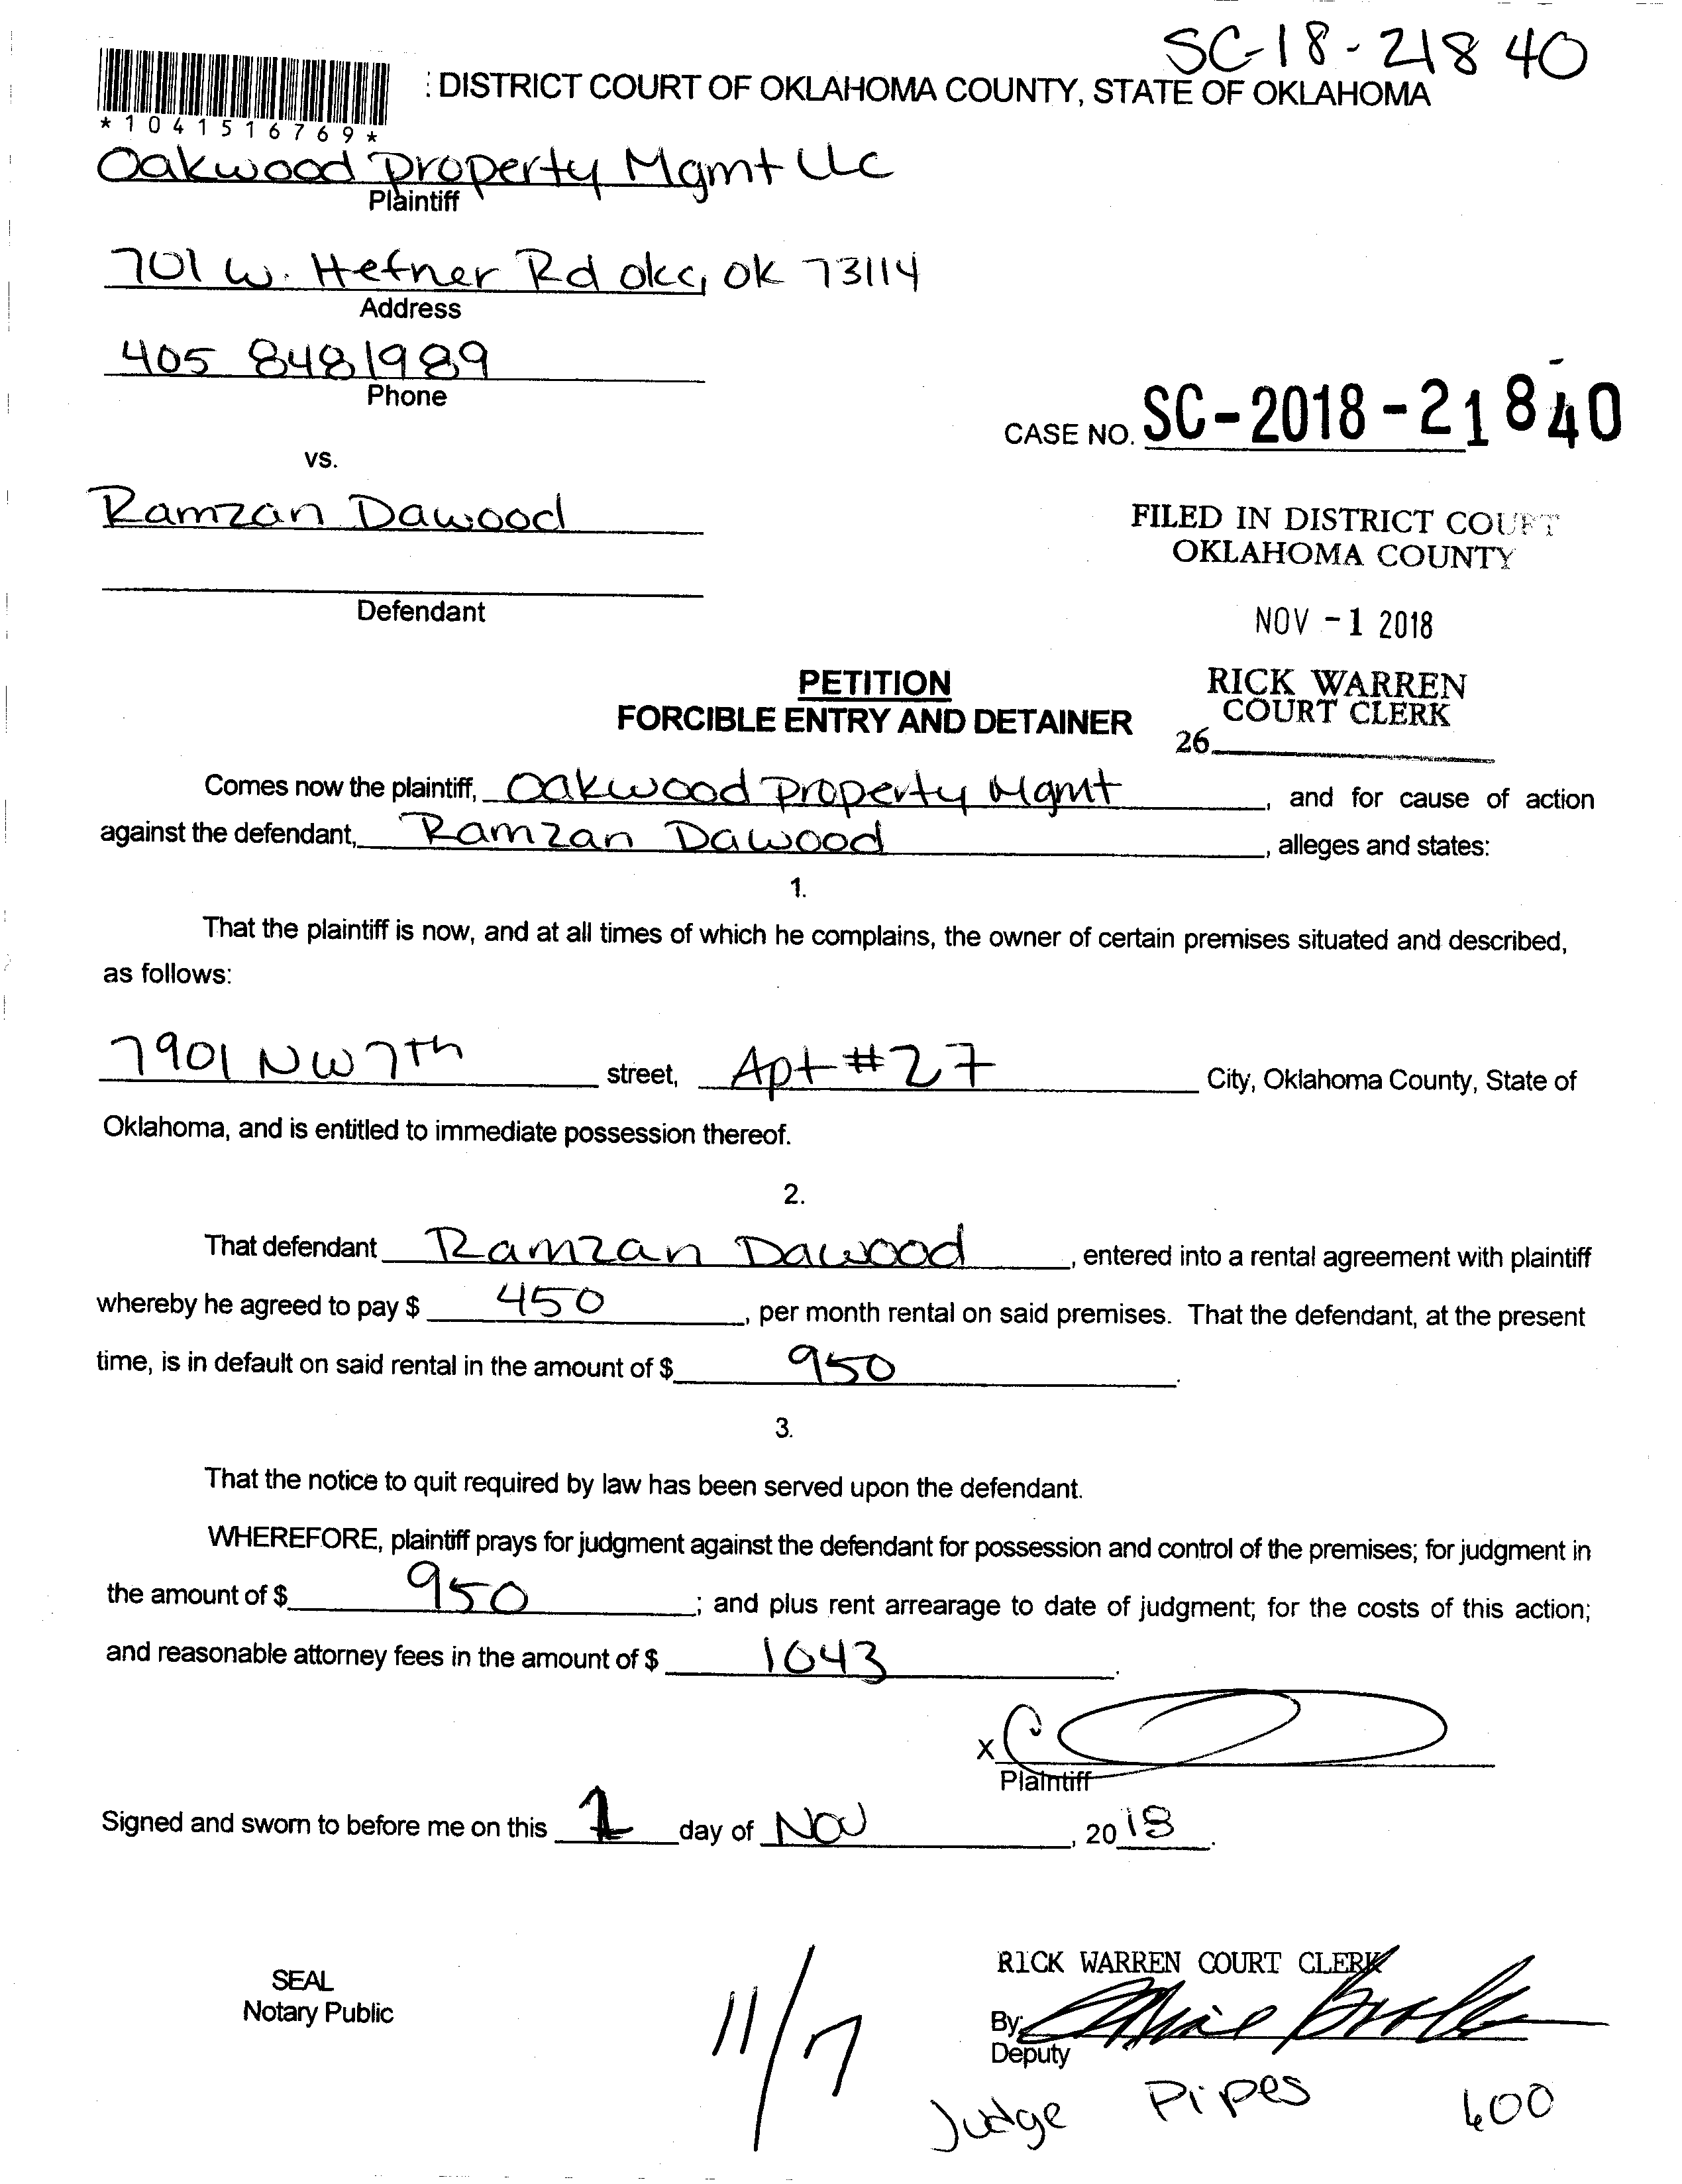 SC-18-21840
: DISTRICT COURT OF OKLAHOMA COUNTY, STATE OF OKLAHOMA
* 1 0 4 1 5 1 6 7 6 9 *
Oakwood Property Mgmt LLC
Plaintiff
701 W. Hefner Rd okc, OK 73114
Address
405 848 1989
Phone
CASE NO. SC-2018-21840
vs.
Ramzan Dawood
FILED IN DISTRICT COURT
OKLAHOMA COUNTY
Defendant
NOV -1 2018
PETITION
FORCIBLE ENTRY AND DETAINER
RICK WARREN
COURT CLERK
26
Comes now the plaintiff, Oakwood Property Mgmt, and for cause of action
against the defendant, Ramzan Dawood, alleges and states:
1.
That the plaintiff is now, and at all times of which he complains, the owner of certain premises situated and described,
as follows:
7901 NW 7th street, Apt #27 City, Oklahoma County, State of
Oklahoma, and is entitled to immediate possession thereof.
2.
That defendant Ramzan Dawood, entered into a rental agreement with plaintiff
whereby he agreed to pay $ 450, per month rental on said premises. That the defendant, at the present
time, is in default on said rental in the amount of $ 950.
3.
That the notice to quit required by law has been served upon the defendant.
WHEREFORE, plaintiff prays for judgment against the defendant for possession and control of the premises; for judgment in
the amount of $ 950; and plus rent arrearage to date of judgment; for the costs of this action;
and reasonable attorney fees in the amount of $ 1043.
x
Plaintiff
Signed and sworn to before me on this 1 day of Nov, 2018.
SEAL
Notary Public
11/7
RICK WARREN COURT CLERK
By:
Deputy
Judge Pipes 600